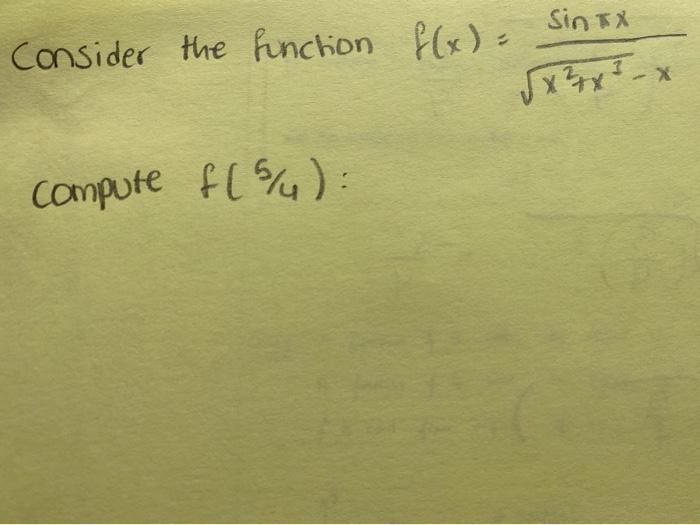 Consider the function f(x) = sin πx / √x²+x³ - x
Compute f(5/4):